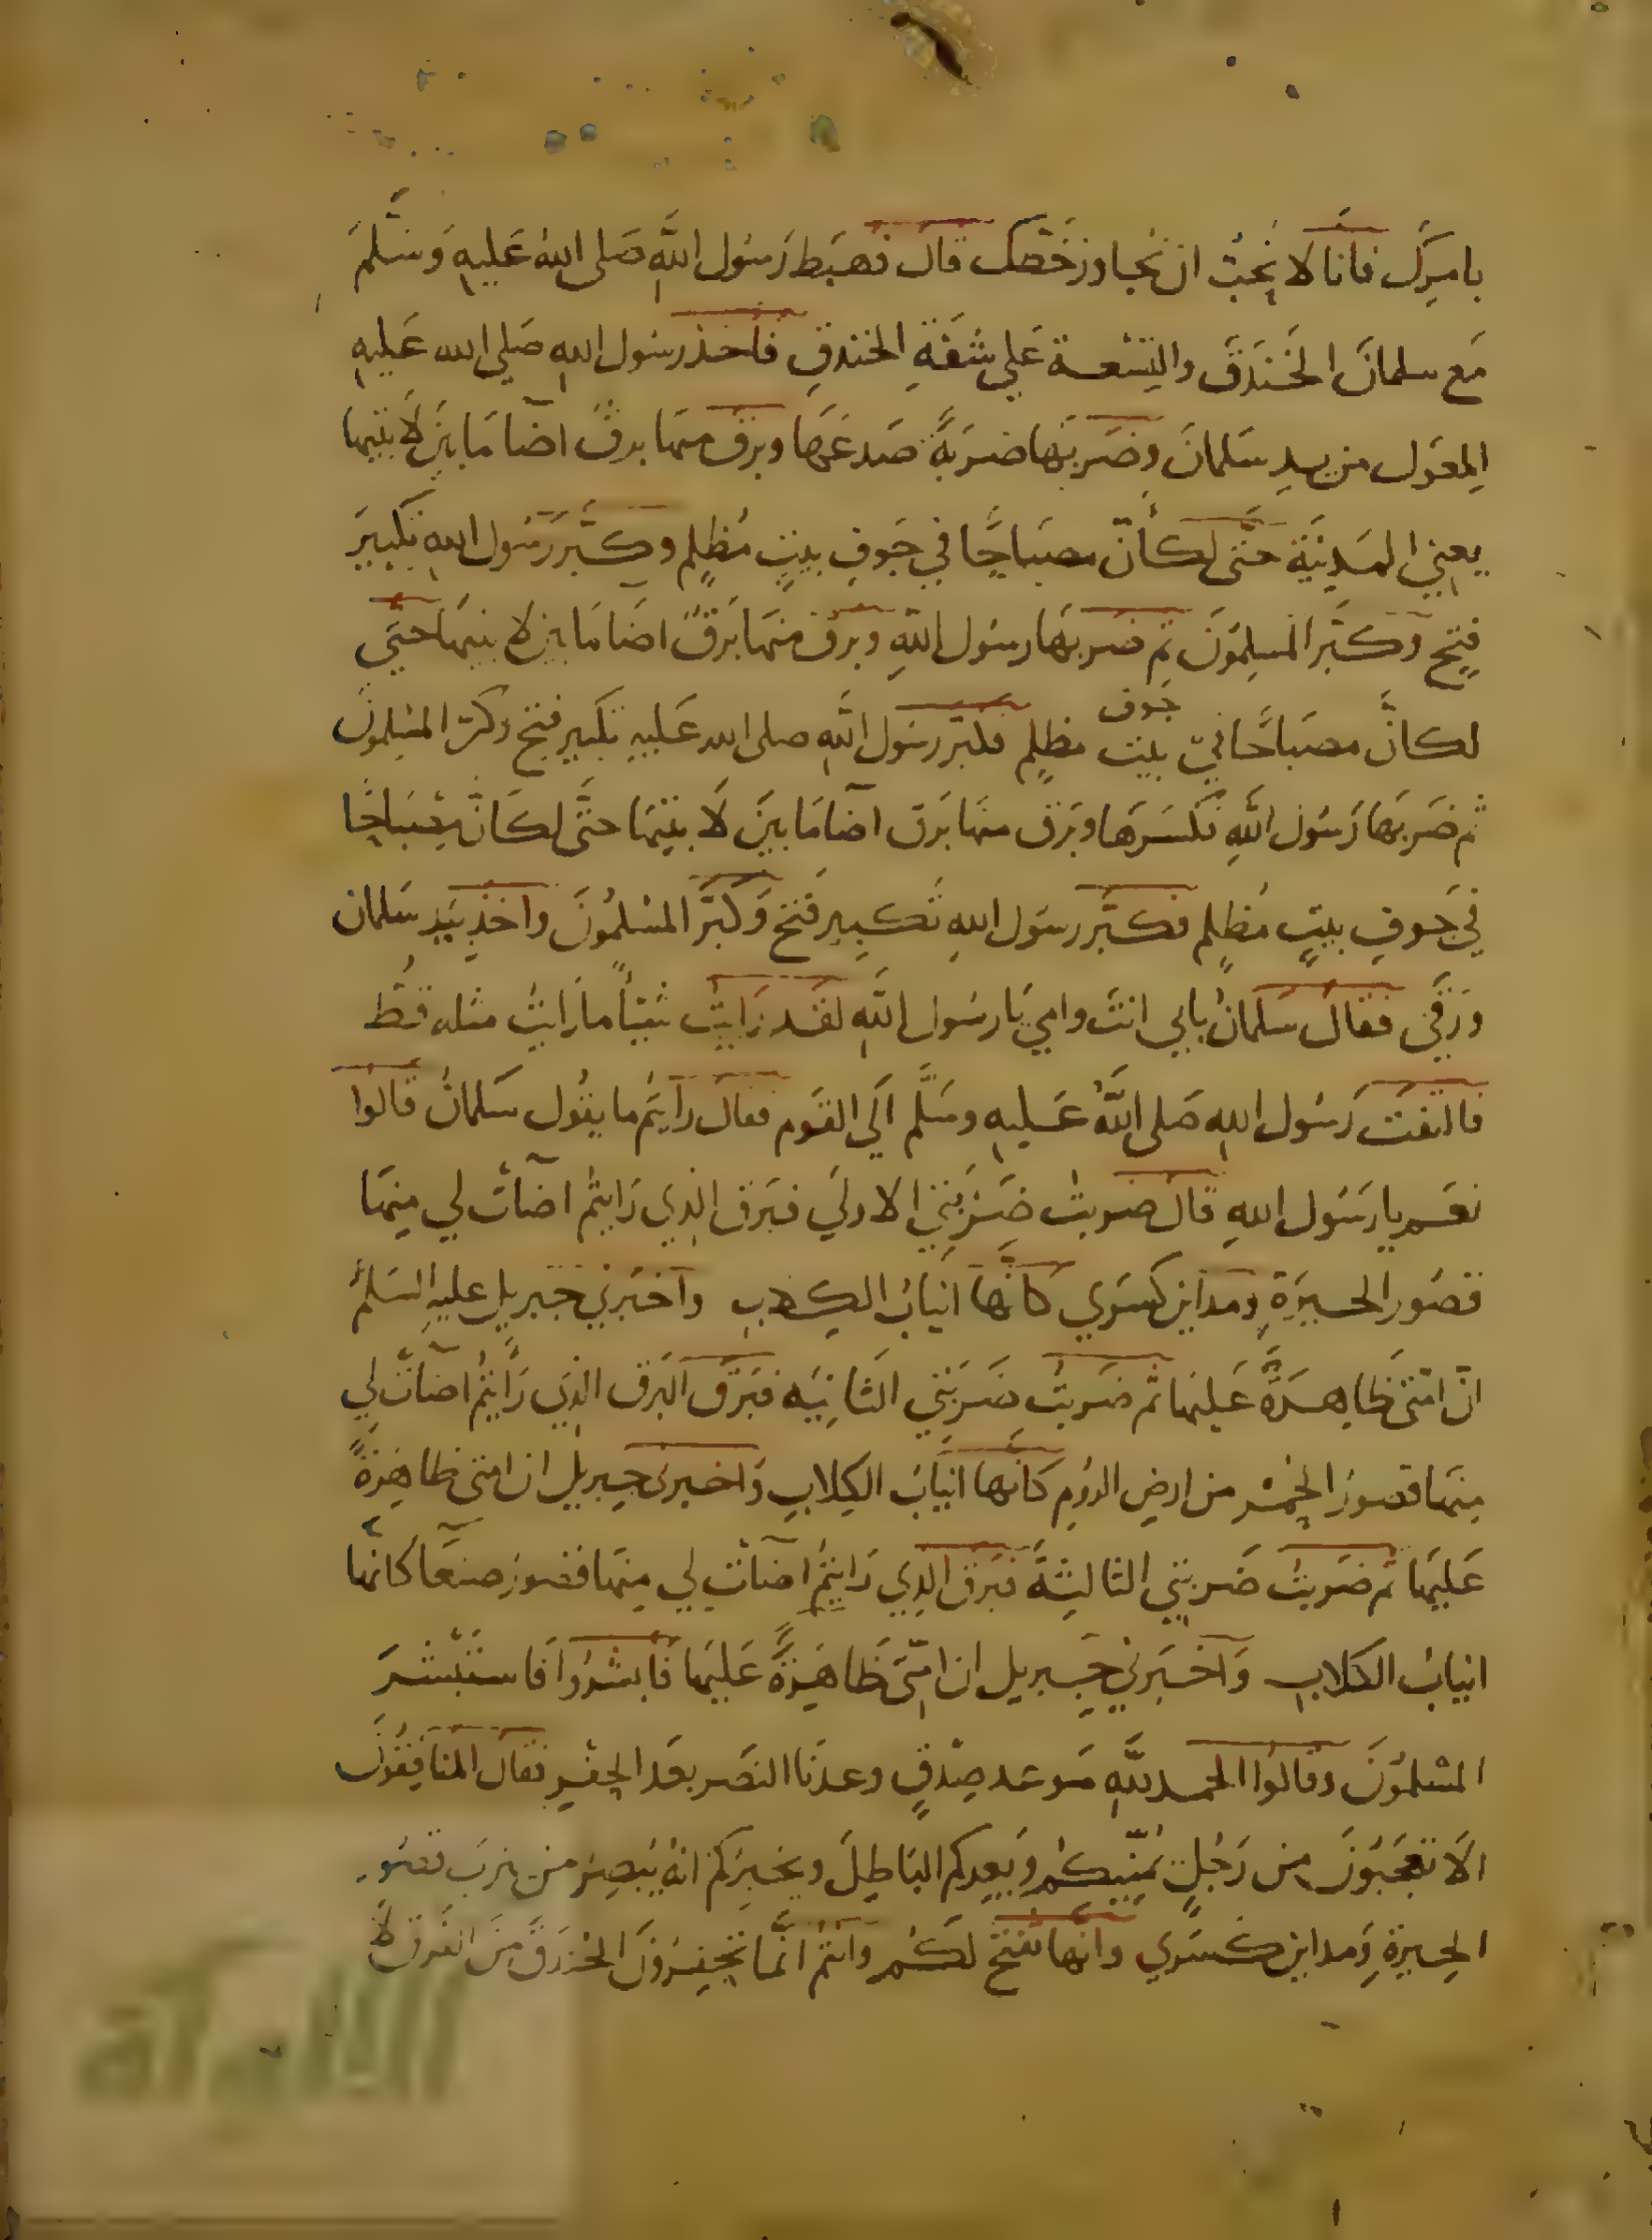 بامرك فانا لا نحب ان نجاوز خطك قال فهبط رَسُول اللَّهِ صَلى اللهُ عَليهِ وَسَلَّمَ
مَع سلمانَ الخَندَقَ والتِسْعة عَلي شَفَةِ الخندقِ فاخذ رسول اللهِ صَلي الله عَليهِ
المِعوَل من يدِ سَلمانَ وضَربَها ضربَةً صَدعَهَا وبرق منهَا برقٌ اضآ مَا بَين لَابتيها
يعني المدينَةَ حتَّى لكأنّ مصبَاحًا في جَوفِ بيتٍ مُظلِمٍ وكبَّر رَسُول اللهِ تكبيرَ
فتحٍ وكبَّر المسلِمُونَ ثم ضربهَا رسُول اللَّهِ وبرق منهَا بَرقٌ اضَا مَا بين لابتيهَا حتي
لكانَّ مصبَاحًا في جَوف بيتٍ مظلِمٍ فكبّر رسُول اللَّهِ صلى الله عَليهِ تكبير فتح وكبّر المسْلِمونَ
ثم ضَربَهَا رَسُول اللَّهِ فكسَرَهَا وبَرق منهَا بَرق اضآ مَا بينَ لَابتيهَا حتَّى لكَانَّ مِصْبَاحًا
في جَوفِ بيتٍ مُظلِمٍ فكبّر رسُول اللهِ تَكبير فَتح وَكبَّر المسْلمُونَ واخذ بيَدِ سَلمان
وَرَقَي فقالَ سَلمانُ بابي انتَ وامي يَا رسُول اللَّهِ لقد رَايتُ شيْأً مارَايتُ مثله قطُّ
فالتفتَ رَسُول اللهِ صَلى اللَّهُ عَليهِ وسَلَّم الَي القَوم فقالَ رايتُم ما يقُول سَلمانُ قالوا
نعم يا رسُول اللهِ قال ضربتُ ضَرْبَتي الاولي فبَرق الذِي رَايتُم اضآت لي مِنهَا
قصُور الحيرَةِ ومداين كسرَي كانَّها انيَابُ الكلابِ واخبَرني جبريل عليهِ السَلم
انّ امتى ظَاهِرَةٌ عَليهَا ثم ضَربتُ ضَربَتي الثَانِيَه فبَرق البَرق الذِي رَايتُم اضآت لي
مِنهَا قصورُ الحُمْر من ارضِ الرُومِ كانَّها انيَابُ الكِلابِ وَاخبرني جبريل ان امتى ظاهِرَةٌ
عَليهَا ثم ضَربتُ ضَربتي الثالِثَةَ فبرق الذِي رَايتُم اضآت لي مِنهَا قصورُ صنعَا كانَّها
انيابُ الكلابِ وَاخبَرني جِبريل ان امّتَى ظَاهِرَةٌ عَليهَا فابشرُوا فاستَبْشَرَ
المسْلمُونَ وقالوا الحمد للَّهِ مَوعد صِدْقٍ وعدنَا النَصر بعَد الحَصْرِ فقال المنافِقُونَ
الَا تعجبُونَ من رَجُلٍ يُمَنِّيكُم ويَعِدكم البَاطِلَ ويخبِركُم انهُ يُبصِرُ من يثرب قصُور
الحِيرةِ ومداين كسرَي وانَّها تفتح لكُم وانتُم انَّما تحفِرُونَ الخندقَ منَ الفَرقِ لَا